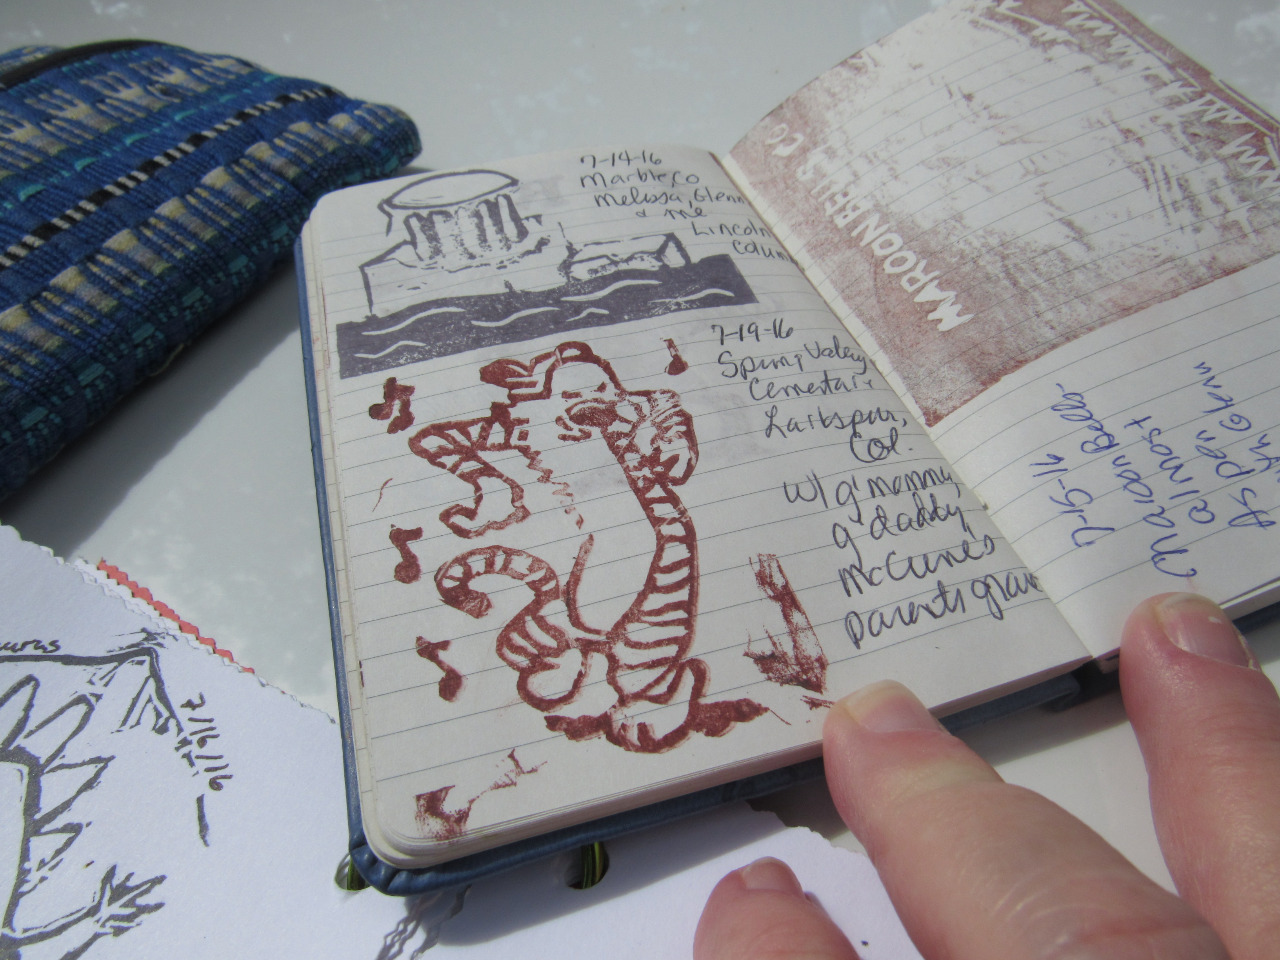 7-14-16
Marble, Co
Melissa, Glenn
& me
Lincoln
Colum
7-19-16
Spring Valley
Cementari
Larkspur,
Col.
w/ g'mommy,
g'daddy,
McCunes
parents grav
MAROON BELLS CO
7-15-16
Maroon Bells
Aspen
almost
Glenn
7/16/16